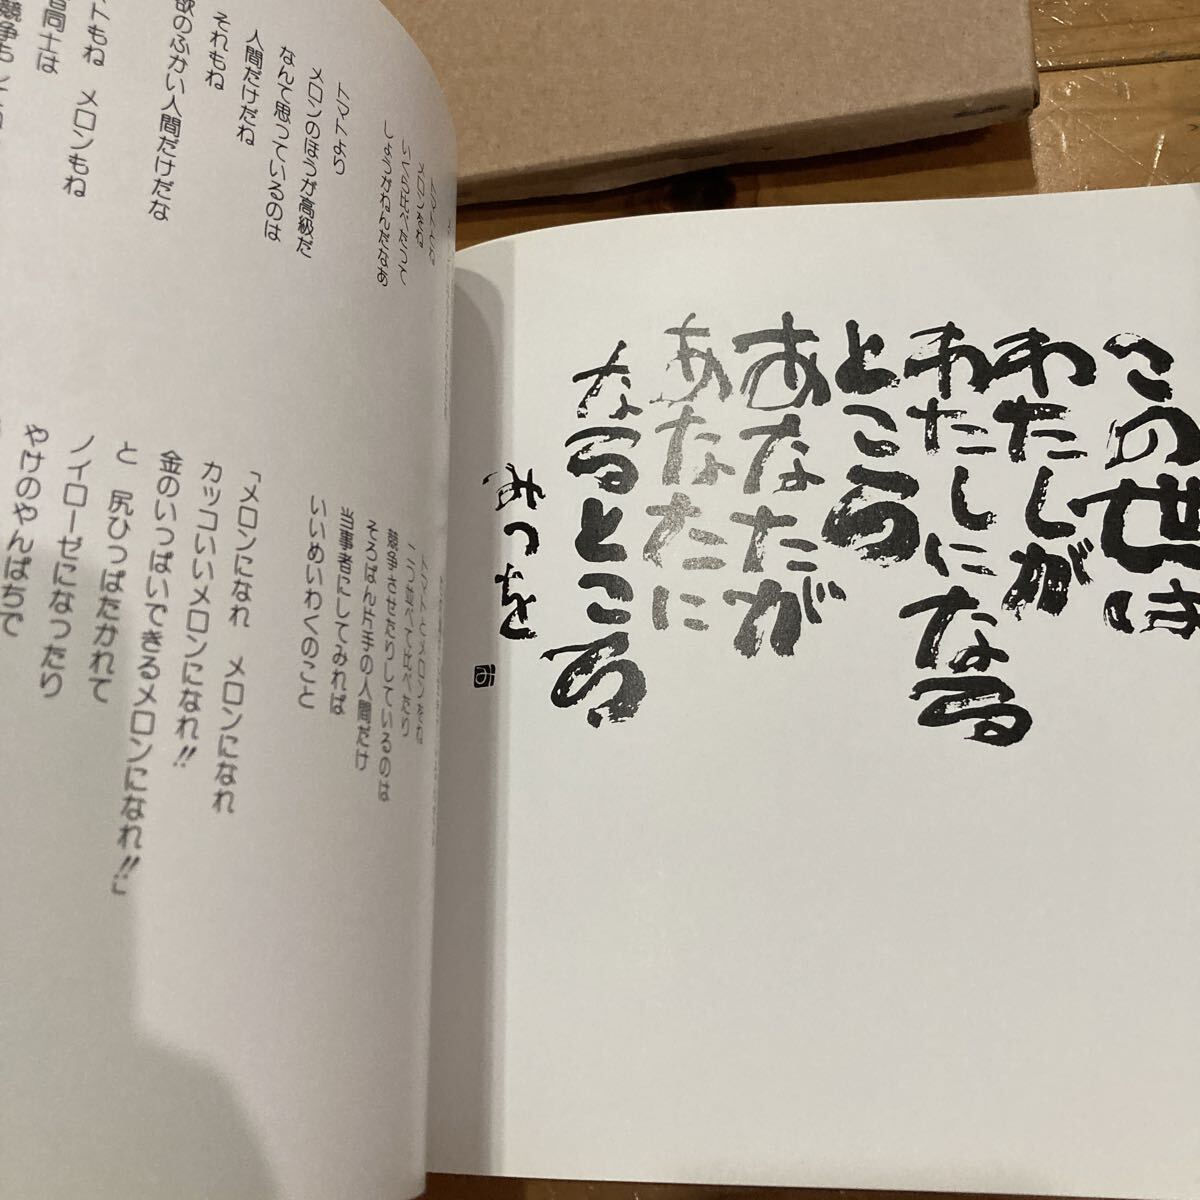 トマトとね
メロンをね
いくら比べたって
しょうがねんだなあ
トマトより
メロンのほうが高級だ
なんて思っているのは
人間だけだね
それもね
欲のふかい人間だけだな
トもね メロンもね
同士は
競争もしてね
トマトとメロンをね
二つ並べて比べたり
競争させたりしているのは
そろばん片手の人間だけ
当事者にしてみれば
いいめいわくのこと
「メロンになれ メロンになれ
カッコいいメロンになれ!!
金のいっぱいできるメロンになれ!!」
と 尻ひっぱたかれて
ノイローゼになったり
やけのやんぱちで
この世は
わたしが
わたしになる
ところ
あなたが
あなたに
なるところ
みつを
み